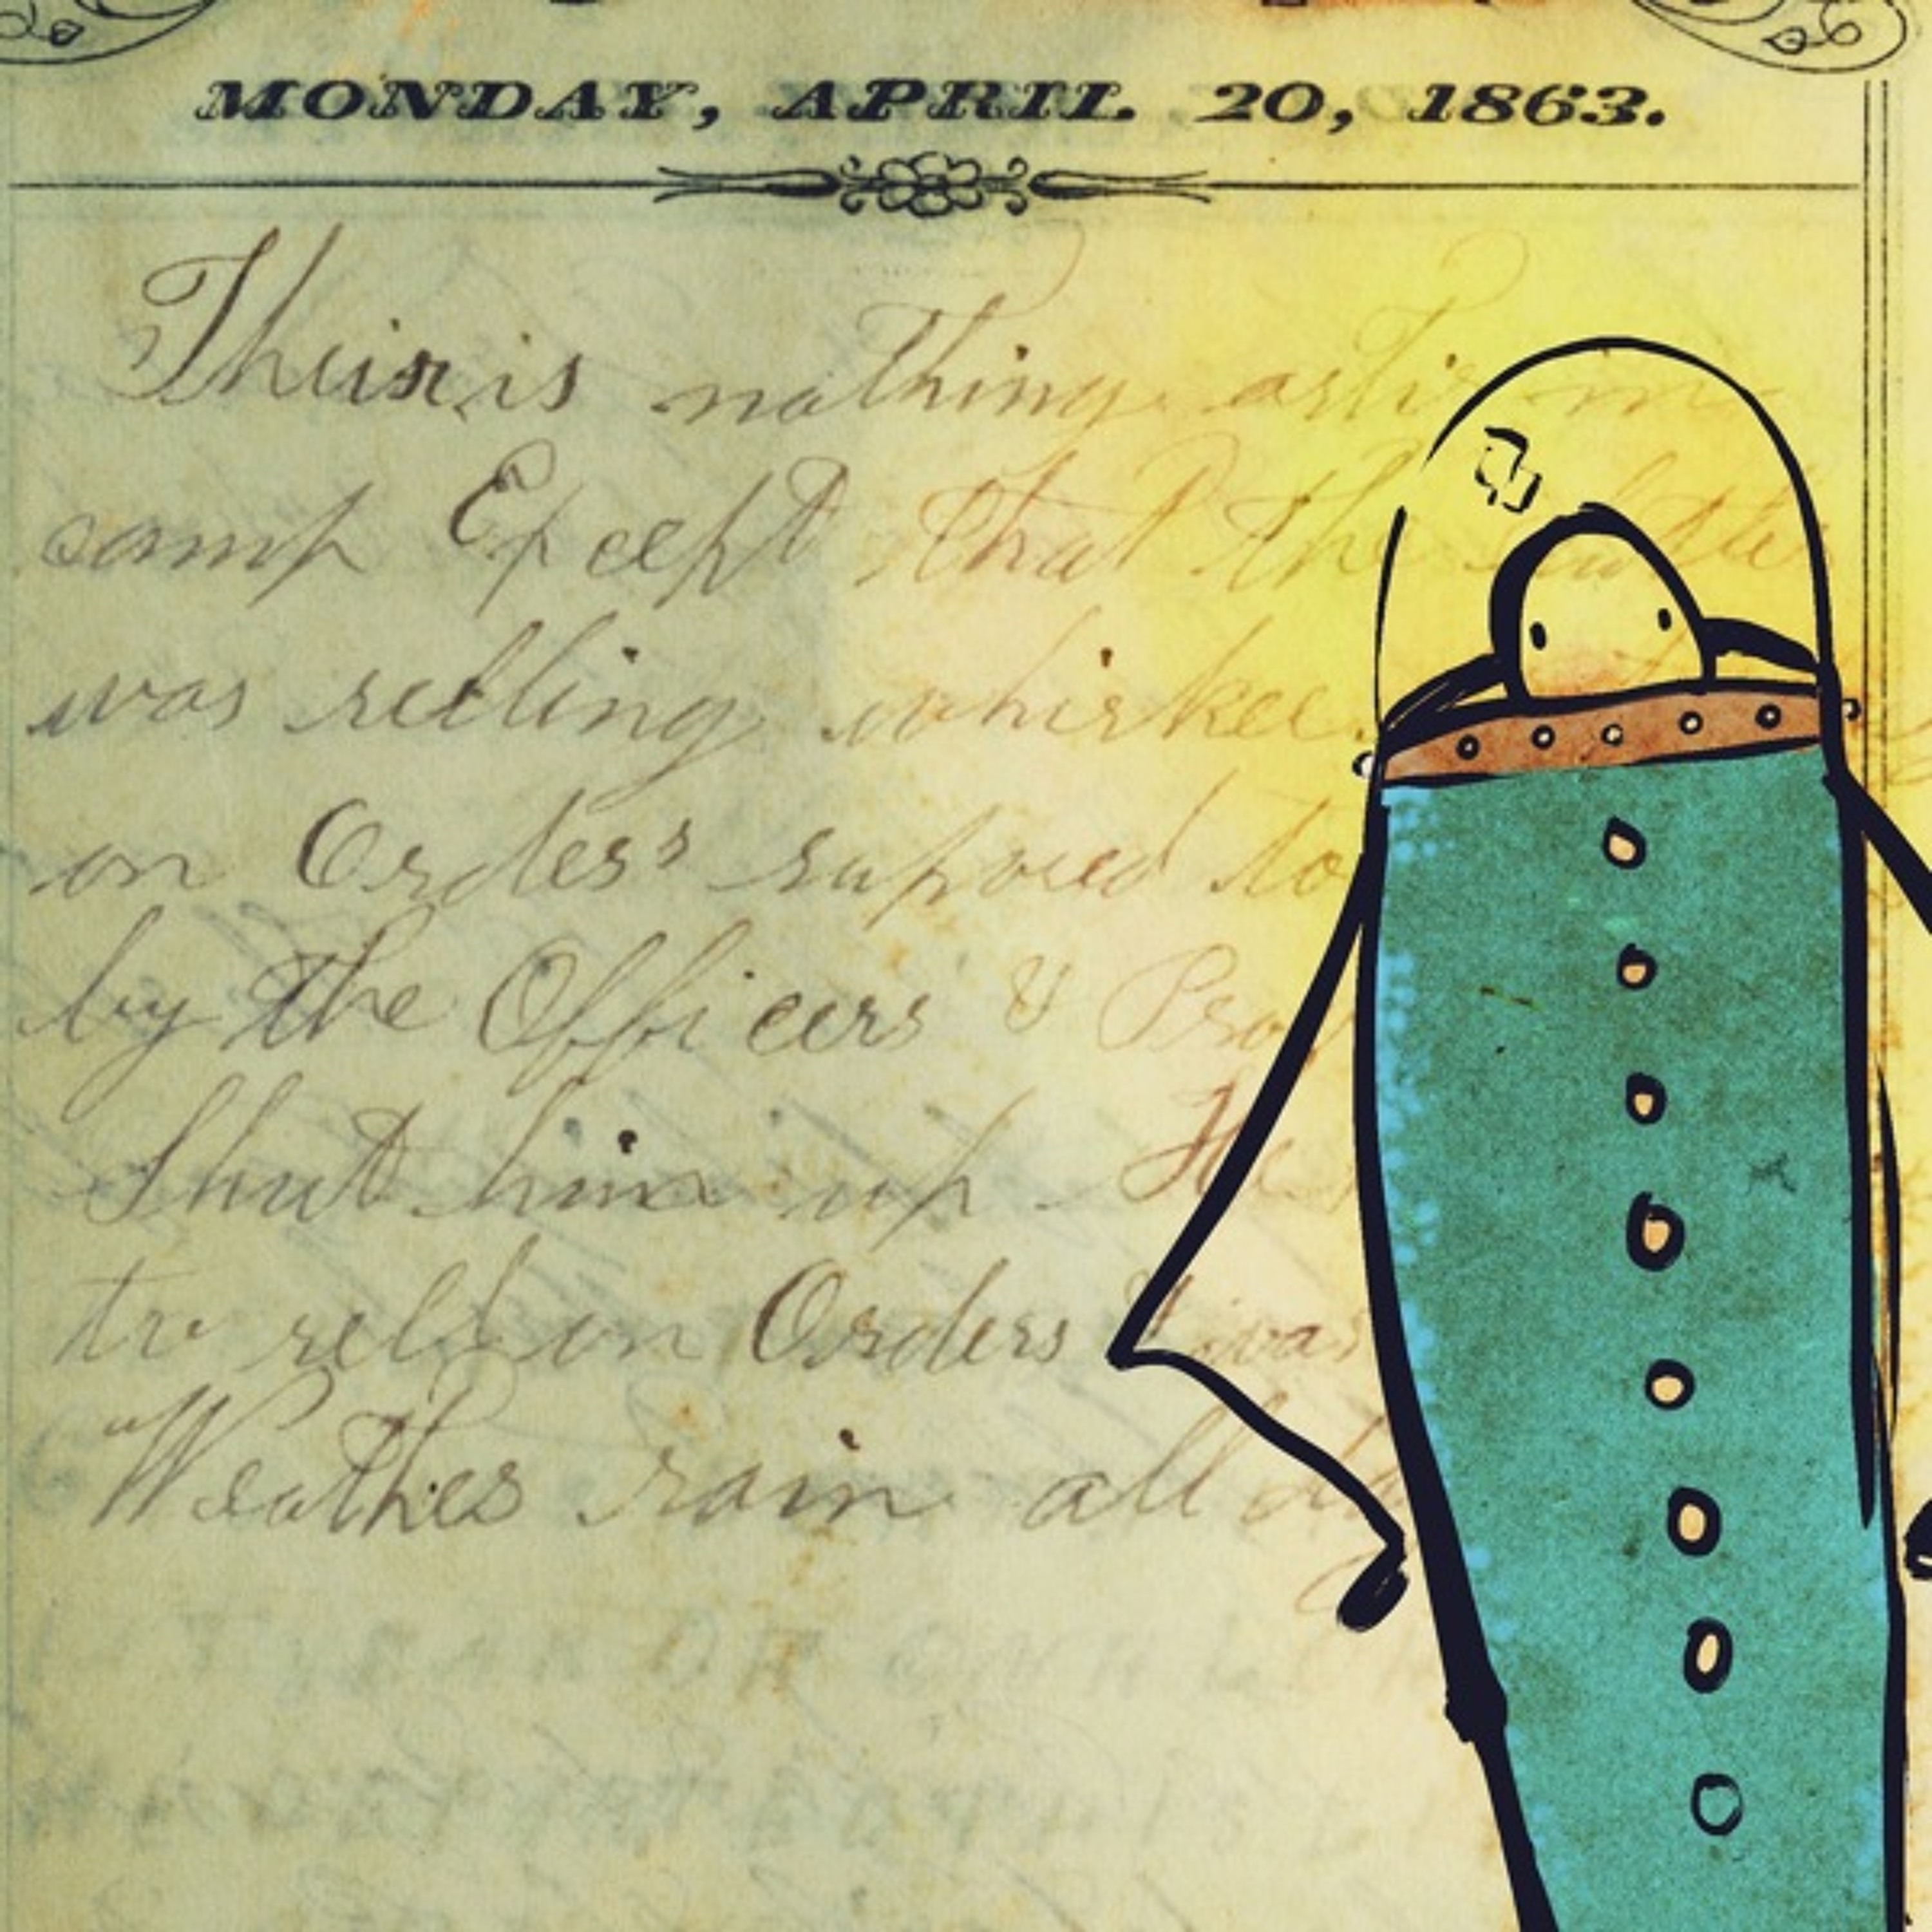 MONDAY, APRIL 20, 1863.
Their is nothing
camp Except that the
was selling whiskee
on Orders to
by the Officers &
Shut him up - He
to sell on Orders
Weather rain all